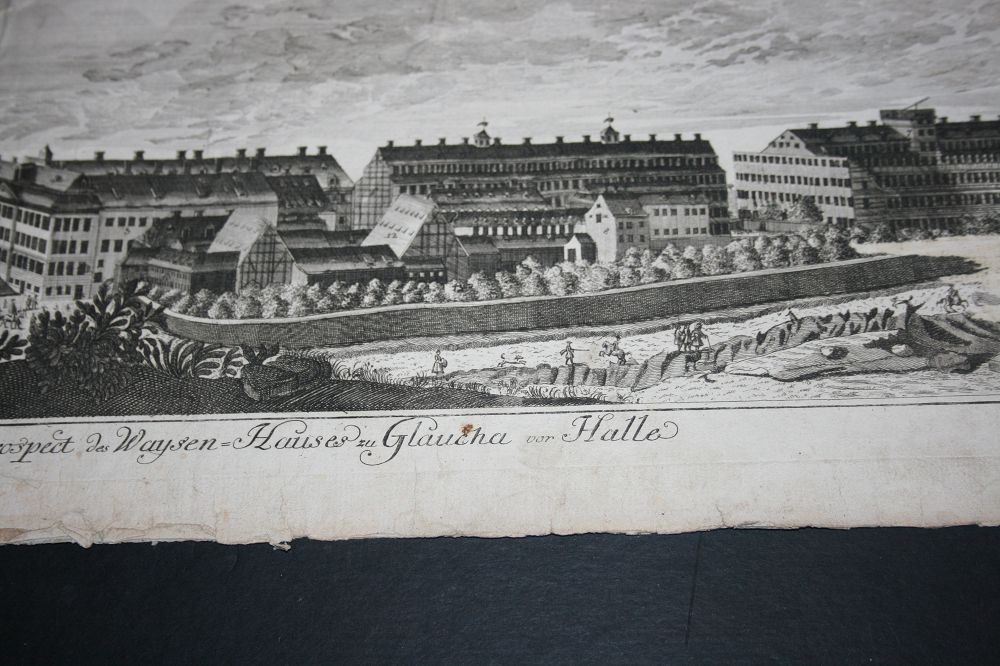 ospect des Waysen=Hauses zu Glaucha vor Halle